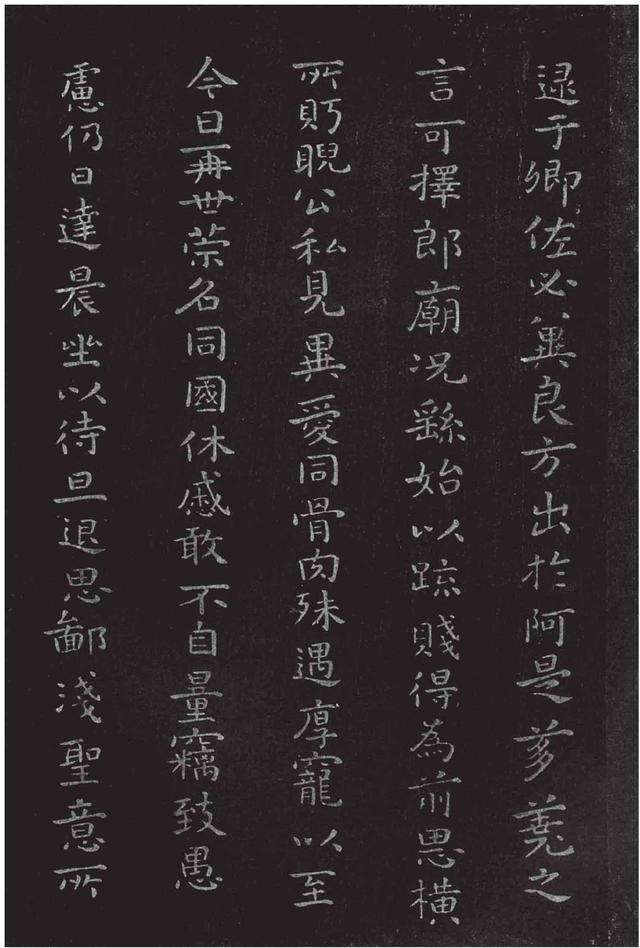 逮于卿佐必冀良方出於阿是芻蕘之
言可擇郎廟况繇始以疏賤得為前恩橫
所眄睨公私見異愛同骨肉殊遇厚寵以至
今日再世榮名同國休慼敢不自量竊致愚
慮仍日達晨坐以待旦退思鄙淺聖意所